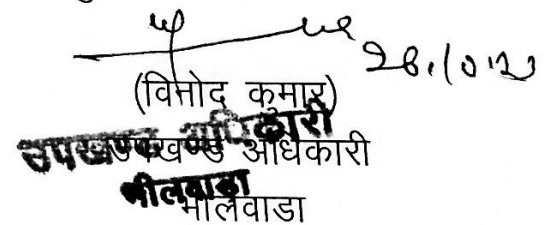 (विनोद कुमार)
उपखण्ड अधिकारी
उपखण्ड अधिकारी
भीलवाडा
भीलवाडा